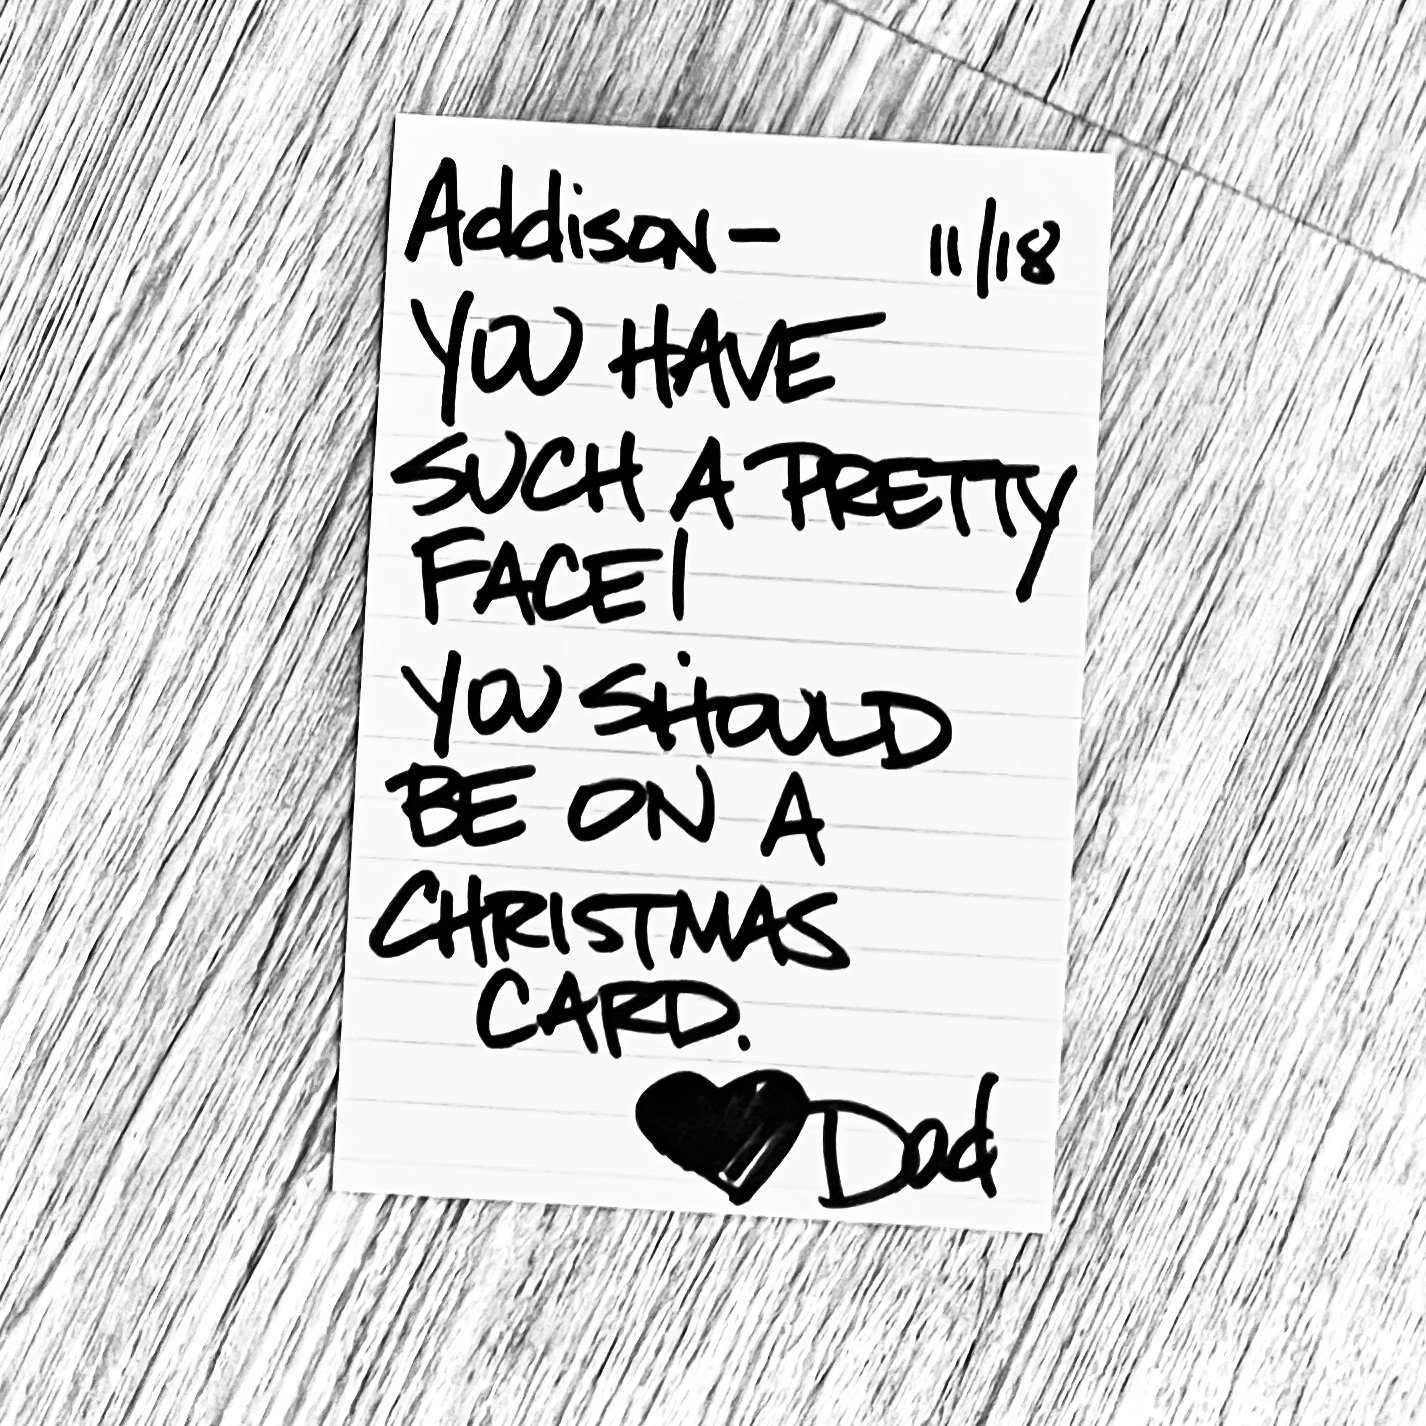 Addison- 11/18
YOU HAVE
SUCH A PRETTY
FACE!
YOU SHOULD
BE ON A
CHRISTMAS
CARD.
Dad